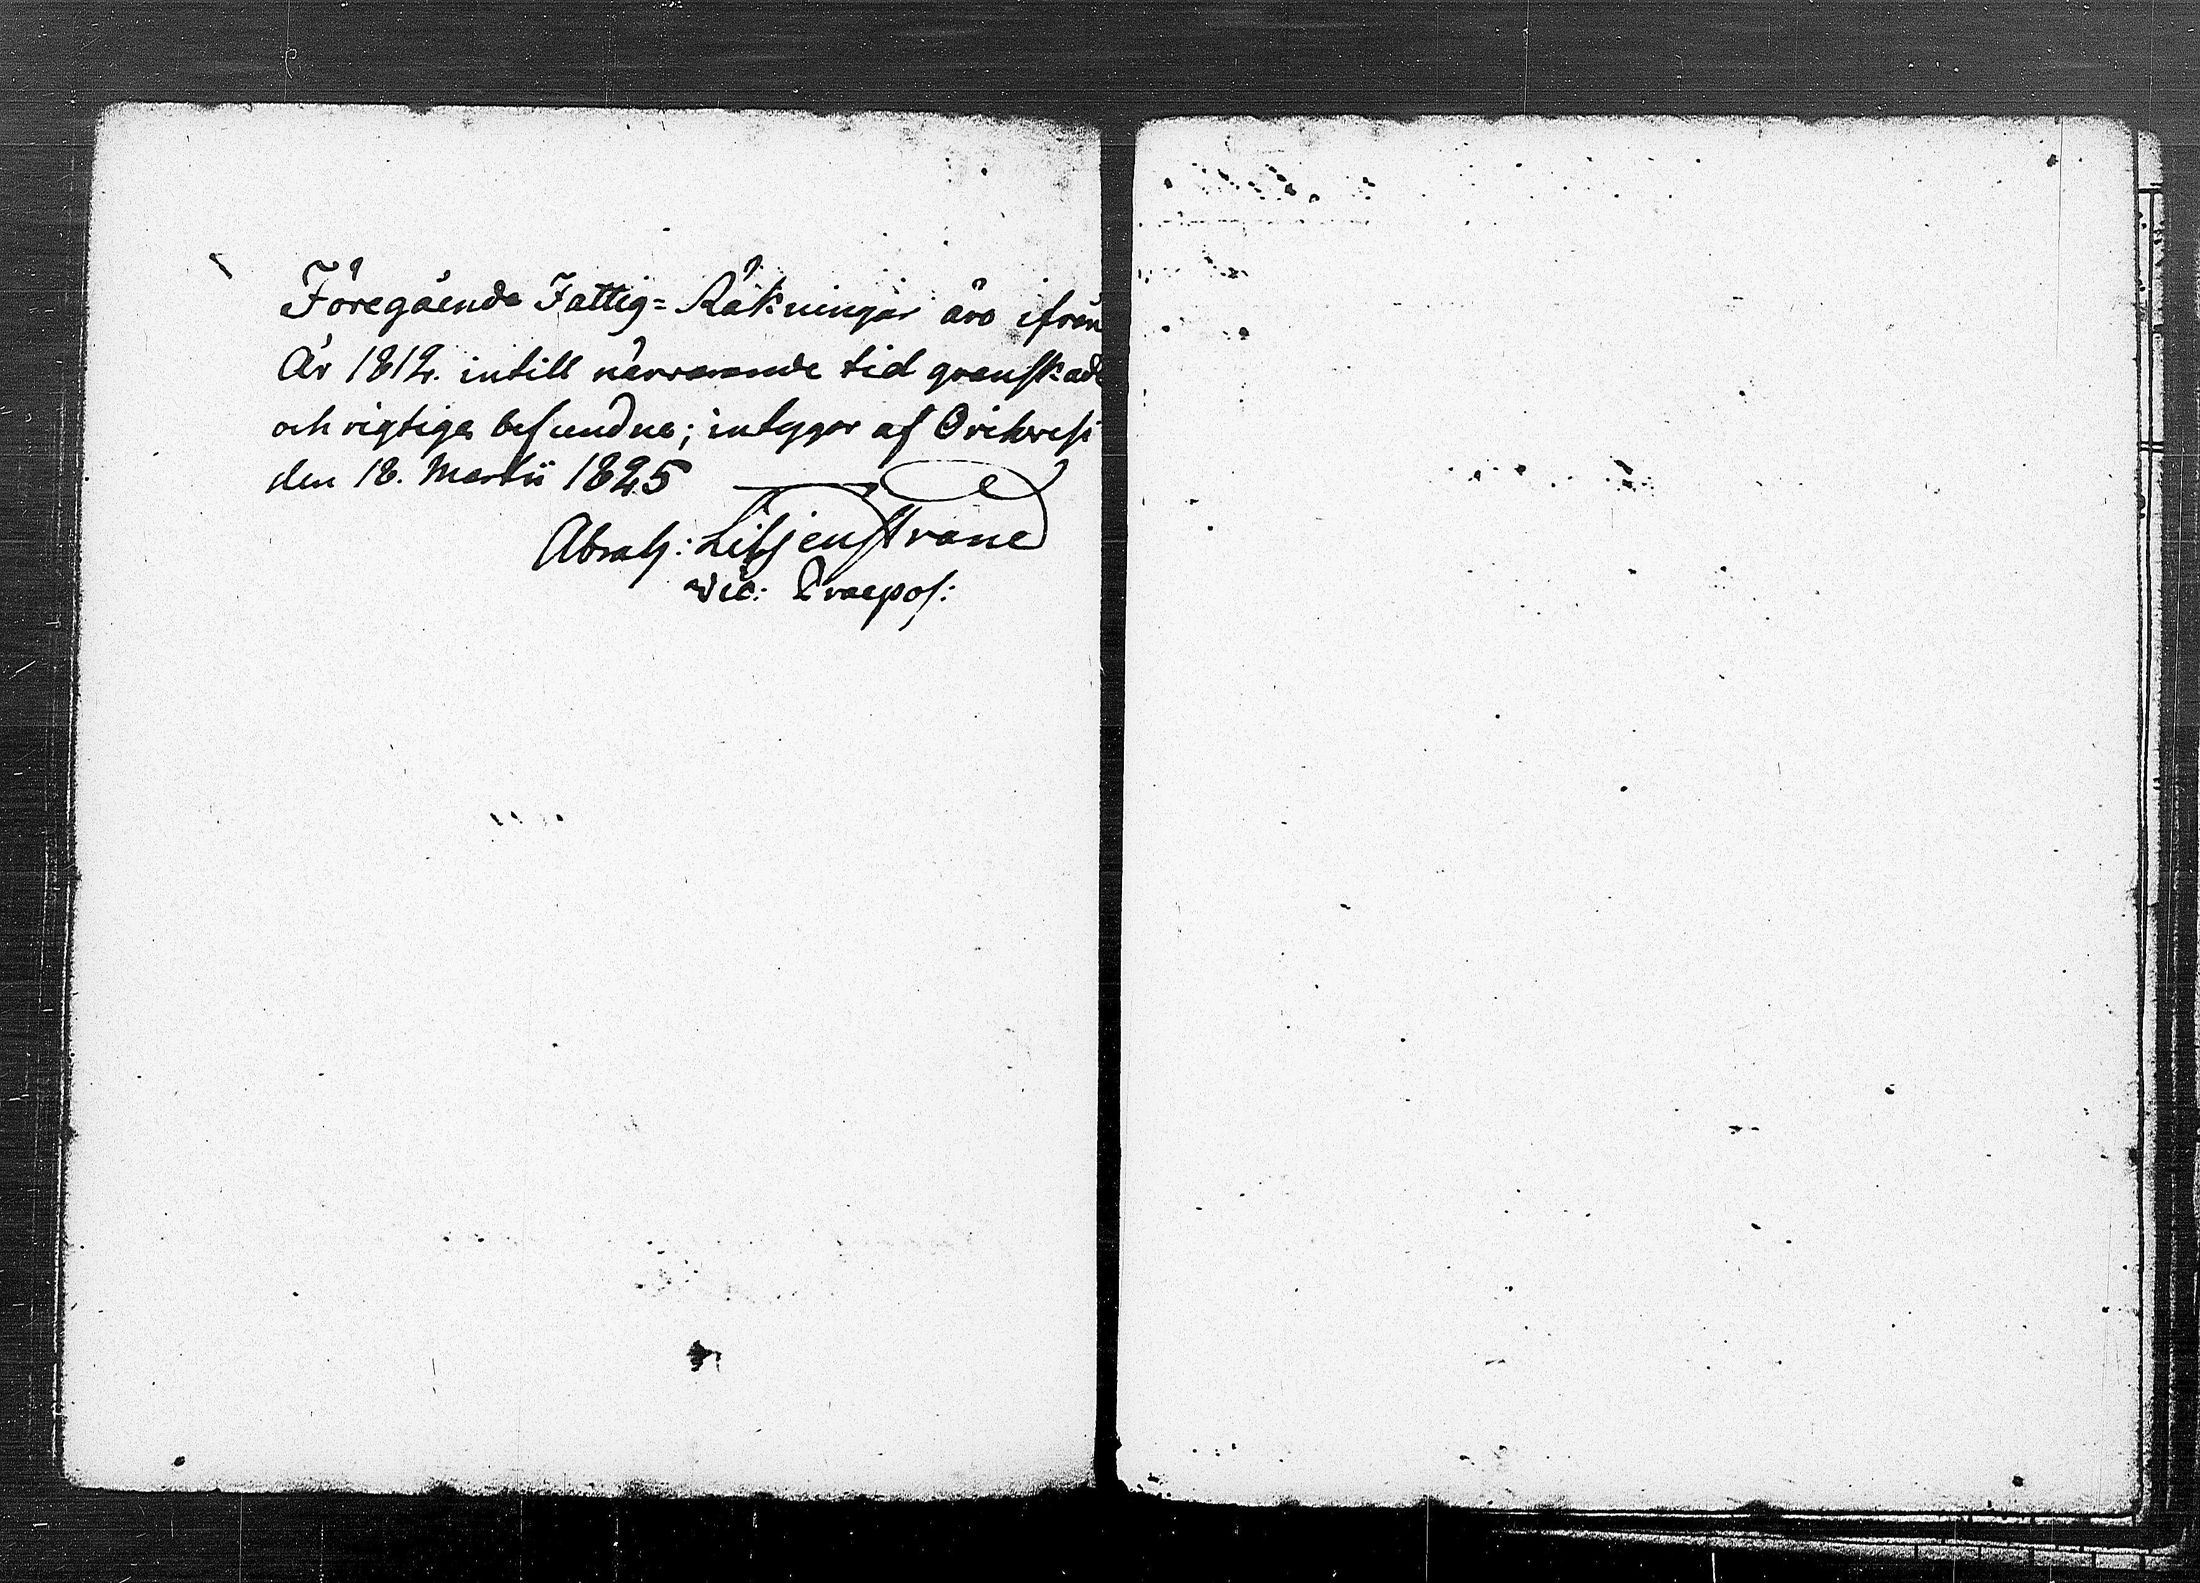 Föregående Fattig= Räkningar äro ifrån
År 1812. intill närvarande tid granskade
och rigtiga befundne; intygar af Orihvesi
den 18. Martii 1825
Abrah: Liljenstrand
Vic: Praepos: